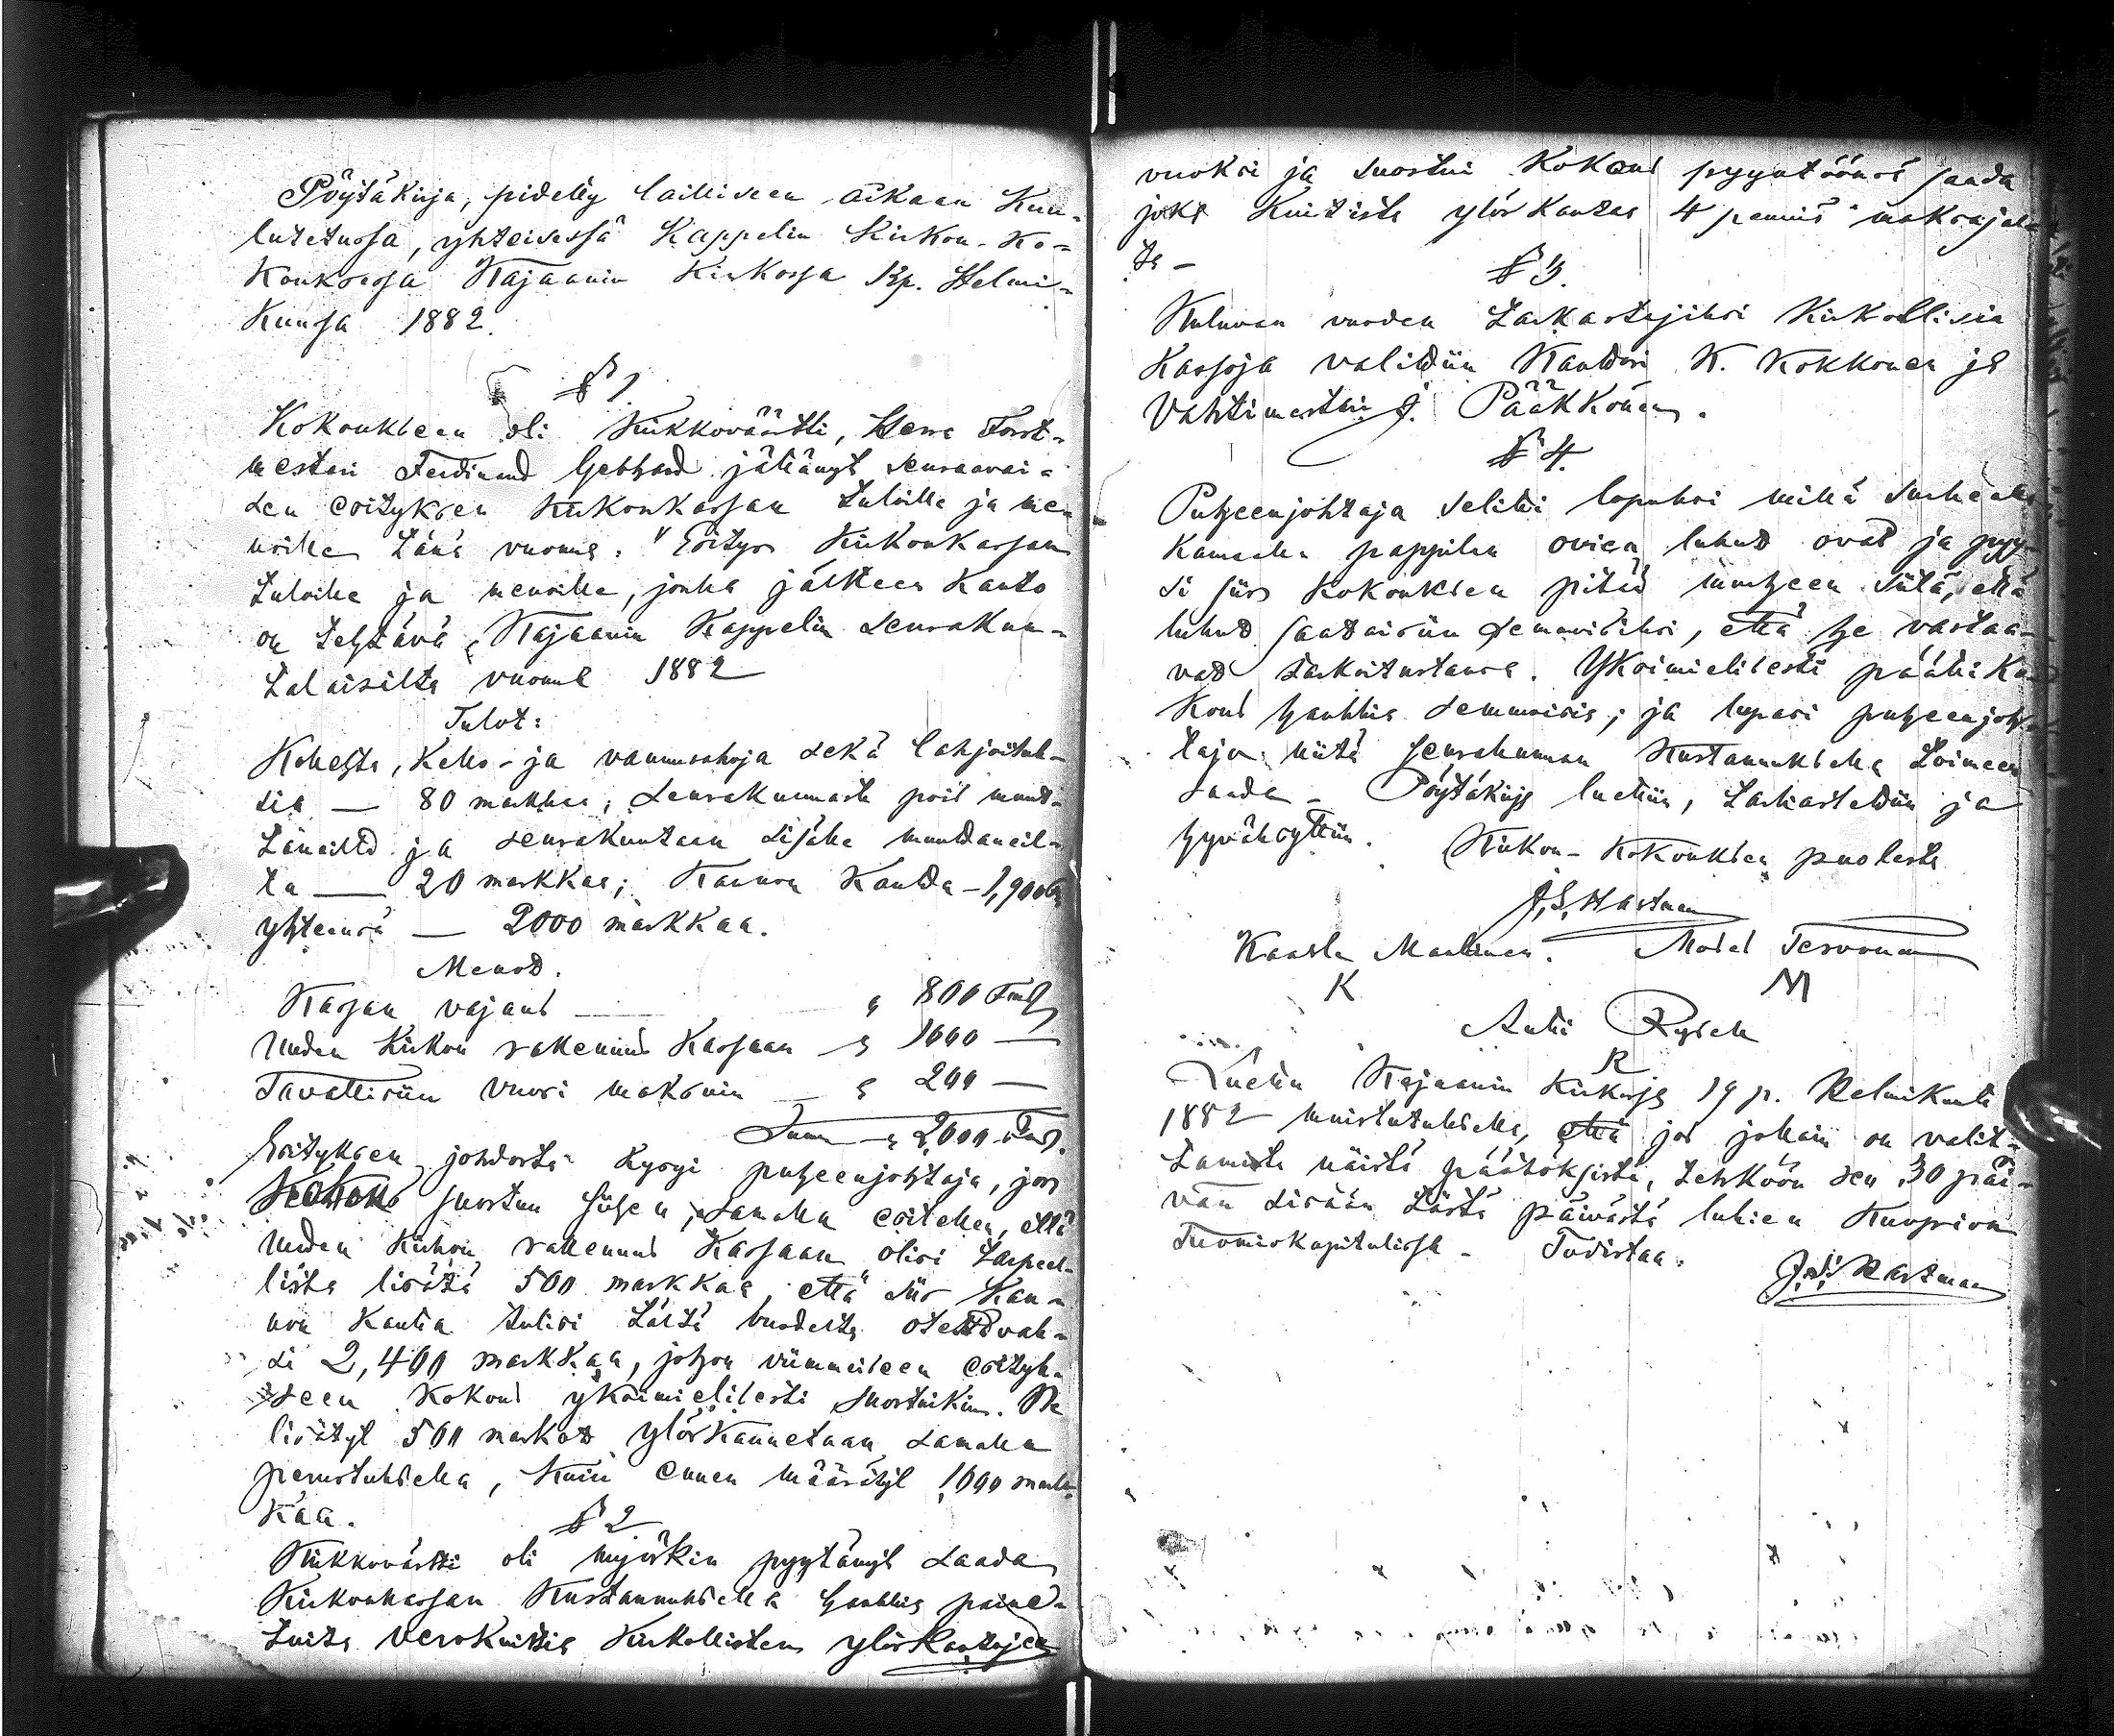 Pöytäkirja, pidetty lailliseen aikaan Kuu-
lutetussa, yhteisessä Kappelin Kirkon-Ko-
Kouksessa Kajaanin Kirkossa 12p. Helmi-
Kuussa 1882.
§ 1.
Kokoukseen oli Kirkkoväärtti, Herra Forst-
mestari Ferdinand Gebhard jättänyt seuraavai-
sen esityksen Kirkonkassan tuloille ja me-
noille tänä vuonna. "Esitys Kirkonkassan
tuloille ja menoille, jonka jälkeen Kanto
on tehtävä Kajaanin Kappelin seurakun-
talaisilta vuonna 1882
Tulot:
Kello- ja vaunurahoja sekä lahjoituk-
sia — 80 markkaa; seurakunnasta pois muut-
taneilta ja seurakuntaan sisälle muuttaneil-
ta — 20 markkaa; Kannon Kautta – 1,900
yhteensä — 2000 markkaa.
Menot.
Kassan vajaus — " 800
Uuden Kirkon rakennus Kassaan — " 1000 —
Tavallisiin vuosi maksuin — " 200 —
Summa — " 2,000
Esityksen johdosta kysyi puheenjohtaja, jos
Kokous suostuu siihen, samalla esitellen, että
Uuden Kirkon rakennus Kassaan olisi tarpeel-
lista lisätä 500 markkaa, että siis Kan-
non Kautta tulisi tästä vuodesta otettavak-
si 2,400 markkaa, johon viimmeiseen esityk-
seen Kokous yksimielisesti suostuikin. Ne
lisätyt 500 markat ylöskannetaan samalla
perustuksella, kuin ennen määrätyt 1000 mark-
kaa.
§ 2
Kirkkovärtti oli myöskin pyytänyt saada
Kirkonkassan Kustannuksella hankkia paine-
tuita verokuittia Kirkollisten ylöskantajen
vuoksi ja suostui Kokous pyyntöönsä saada
joka Kuitista ylös Kantaa 4 penniä maksajal-
ta –
§ 3.
Kuluvan vuoden tarkastajiksi Kirkollisia
Kassoja valittiin Kanttori K. Kokkonen ja
Vahtimestari J. Pääkkönen.
§ 4.
Puheenjohtaja selitti lopuksi millä surkealla
Kannalla pappilan ovien lukut ovat ja pyy-
si siis Kokouksen pitää huolta siitä, että
lukut saataisiin semmoisiksi, että he vastaa-
vat tarkoitustansa. Yksimielisesti päätti Ko-
Kous hankkia semmoisia; ja lupasi puheenjoh-
taja niitä seurakunnan Kustannuksella toimeen
saada – Pöytäkirja luettiin, tarkastettiin ja
hyväksyttiin. Kirkon-Kokouksen puolesta
J. S. Hartman
Kaarle Manninen. Matti Tervonen
K M
Antti
R
Luettu Kajaanin Kirkossa 19 p. Helmikuuta
1882 muistutuksella, että jos jollain on valit-
tamista näistä päätöksistä, tehköön sen 30 päi-
vän sisään tästä päivästä lukien Kuopion
Tuomiokapitulissa – Todistaa.
J. S. Hartman